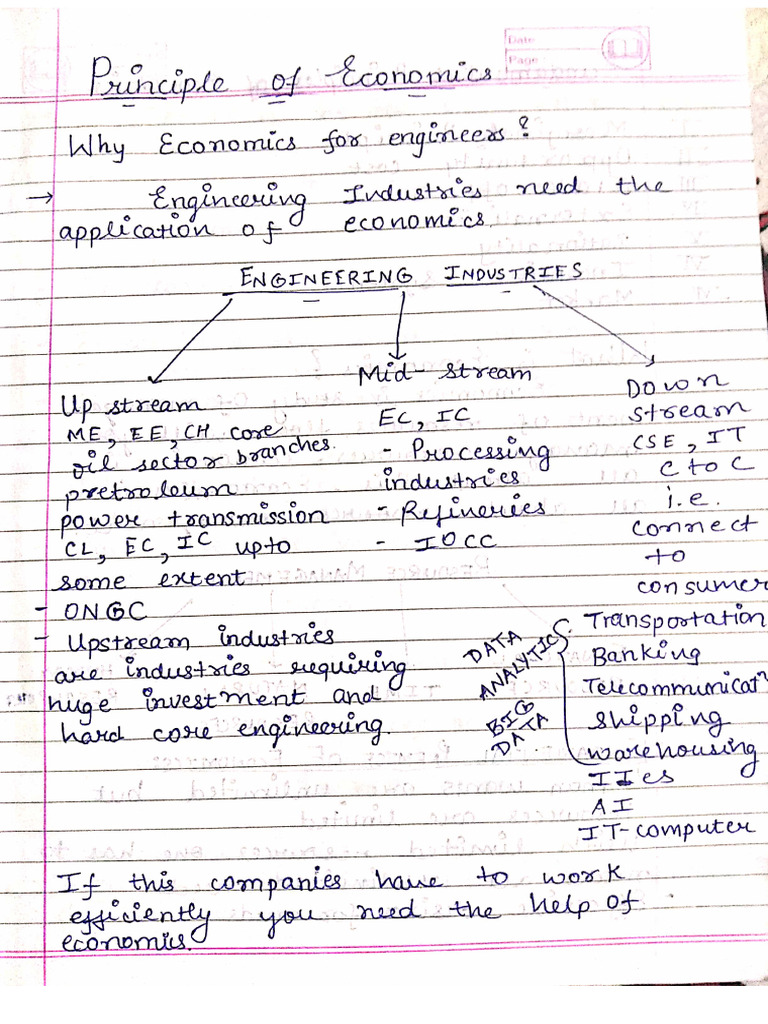 Date
Page
Principle of Economics
Why Economics for engineers?
→ Engineering Industries need the
application of economics.
ENGINEERING INDUSTRIES
Up stream
ME, EE, CH core
oil sector branches.
pretroleum
power transmission
CL, EC, IC upto
some extent
- ONGC
- Upstream industries
are industries requiring
huge investment and
hard core engineering.
Mid-stream
EC, IC
- Processing
industries
- Refineries
- IOCC
Down
stream
CSE, IT
C to C
i.e.
connect
to
consumer
DATA
ANALYTICS
BIG
DATA
Transportation
Banking
Telecommunicat
shipping
warehousing
IIes
AI
IT-computer
If this companies have to work
efficiently you need the help of
economics.